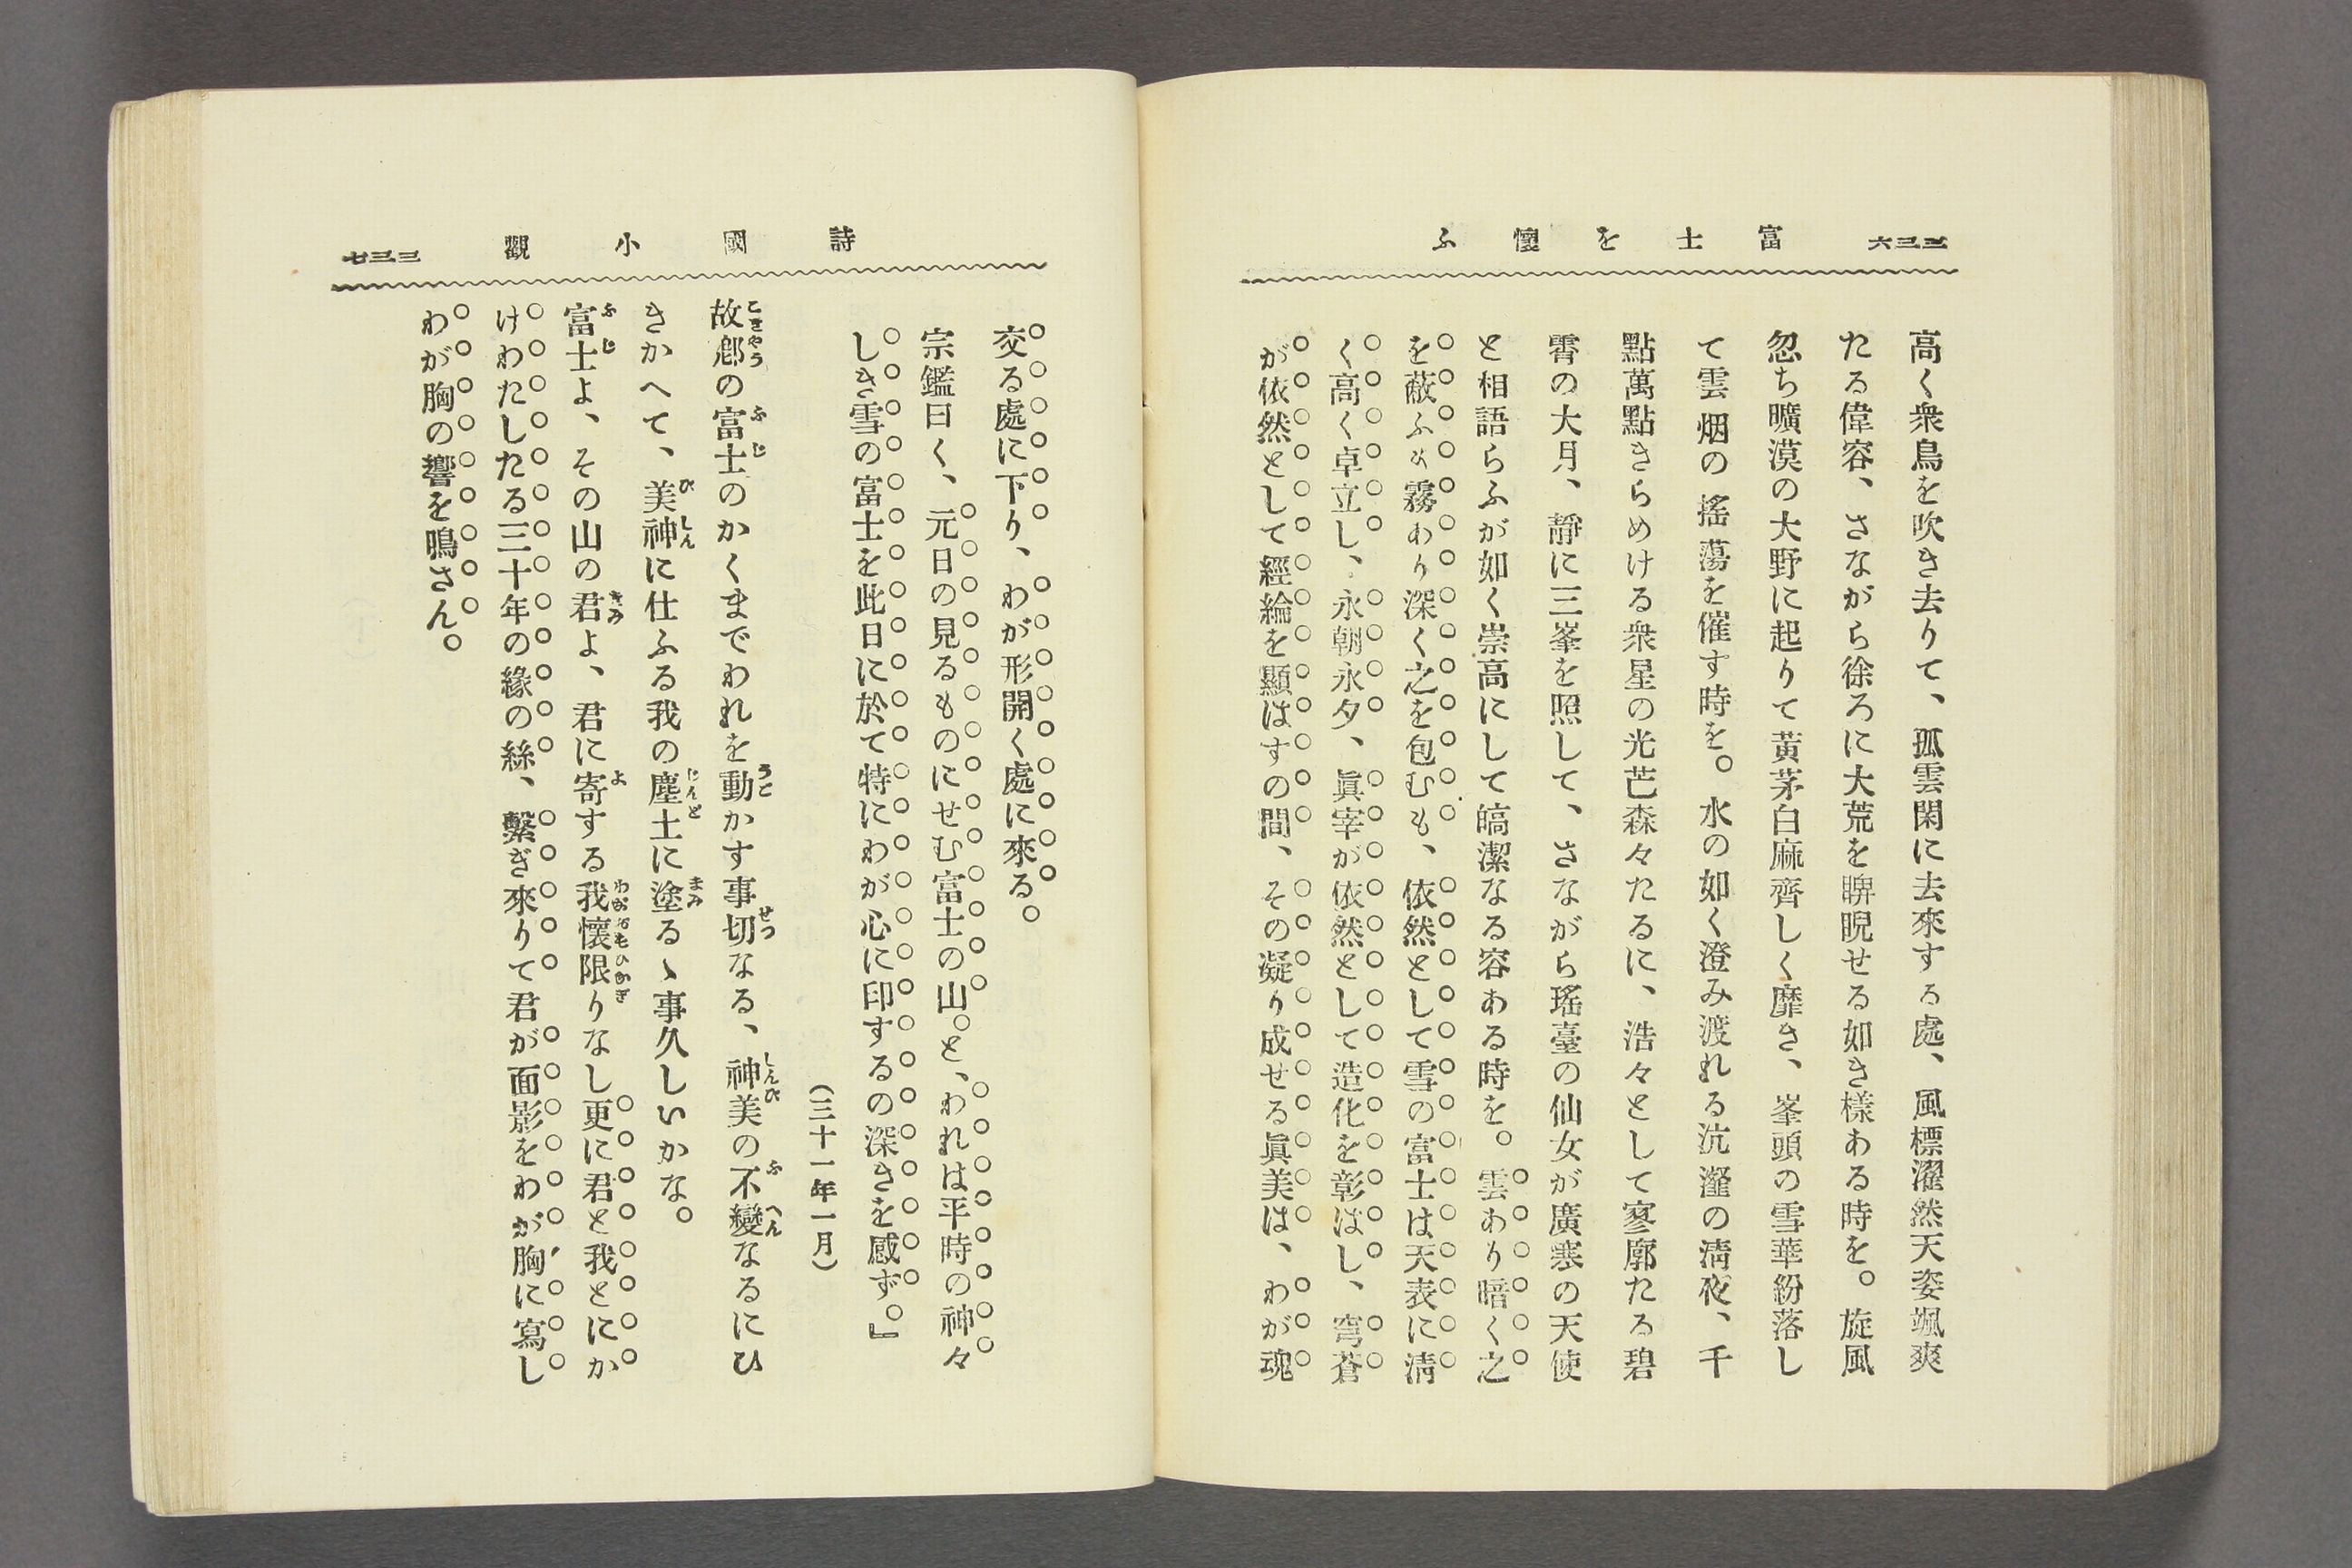 富士を懷ふ
三三六
高く衆鳥を吹き去りて、孤雲閑に去來する處、風標濯然天姿颯爽
たる偉容、さながら徐ろに大荒を睥睨せる如き樣ある時を。旋風
忽ち曠漠の大野に起りて黃茅白麻齊しく靡き、峯頭の雪華紛落し
て雲烟の搖蕩を催す時を。水の如く澄み渡れる沆瀣の淸夜、千
點萬點きらめける衆星の光芒森々たるに、浩々として寥廓たる碧
霄の大月、靜に三峯を照して、さながら瑤臺の仙女が廣寒の天使
と相語らふが如く崇高にして皜潔なる容ある時を。雲あり暗く之
を蔽ふも霧あり深く之を包むも、依然として雪の富士は天表に淸
く高く卓立し、永朝永夕、眞宰が依然として造化を彰はし、穹蒼
が依然として經綸を顯はすの間、その凝り成せる眞美は、わが魂
詩國小觀
三三七
交る處に下り、わが形開く處に來る。
宗鑑曰く、元日の見るものにせむ富士の山。と、われは平時の神々
しき雪の富士を此日に於て特にわが心に印するの深きを感ず。』
（三十一年一月）
故鄕の富士のかくまでわれを動かす事切なる、神美の不變なるにひ
きかへて、美神に仕ふる我の塵土に塗るゝ事久しいかな。
富士よ、その山の君よ、君に寄する我懷限りなし更に君と我とにか
けわたしたる三十年の緣の絲、繫ぎ來りて君が面影をわが胸に寫し
わが胸の響を鳴さん。